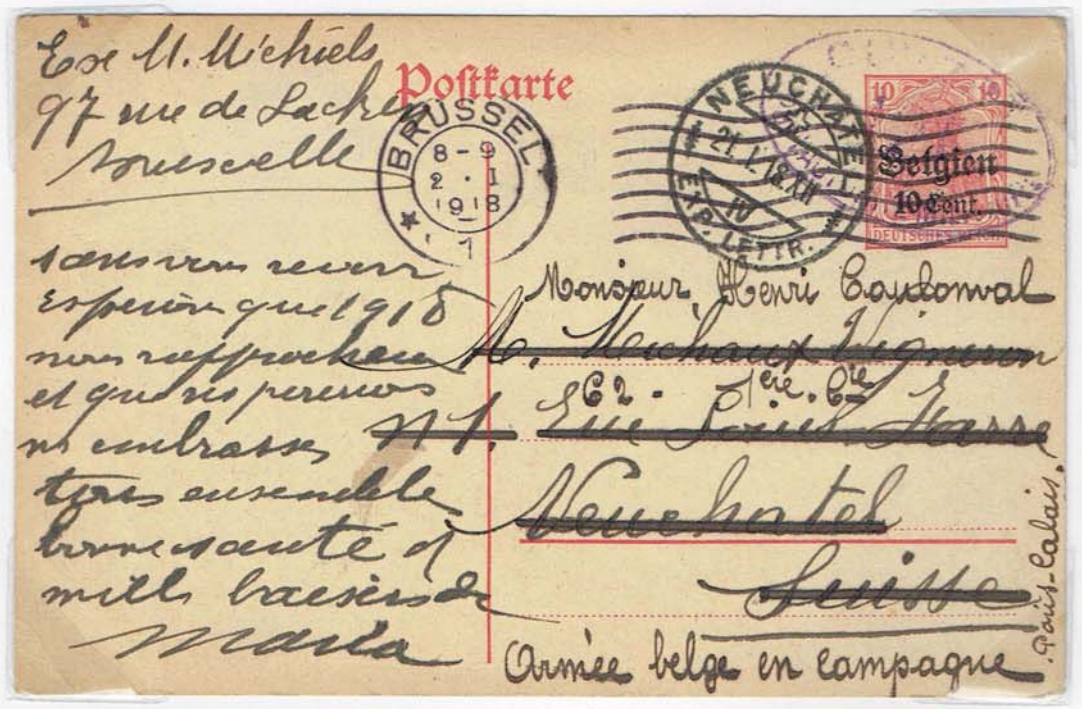 Exp M. Michiels
97 rue de
Bruxelles
Postkarte
BRUSSEL
8-9
2.I
1918
1
NEUCHATEL
21.I.18.XII
IV
EXP. LETTR.
10 10
Belgien
10 Cent.
DEUTSCHES REICH
sans vous revoir
Esperons que 1918
nous rapprochera
et que
embrasser
tous ensemble
bonne santé et
mille baisers de
Maria
Monsieur Henri Coulonval
A. Michaux
62 - 1ère Cie
N 1. Rue Louis Favre
Neuchatel
Suisse
Armée belge en campagne
Paris-Calais.